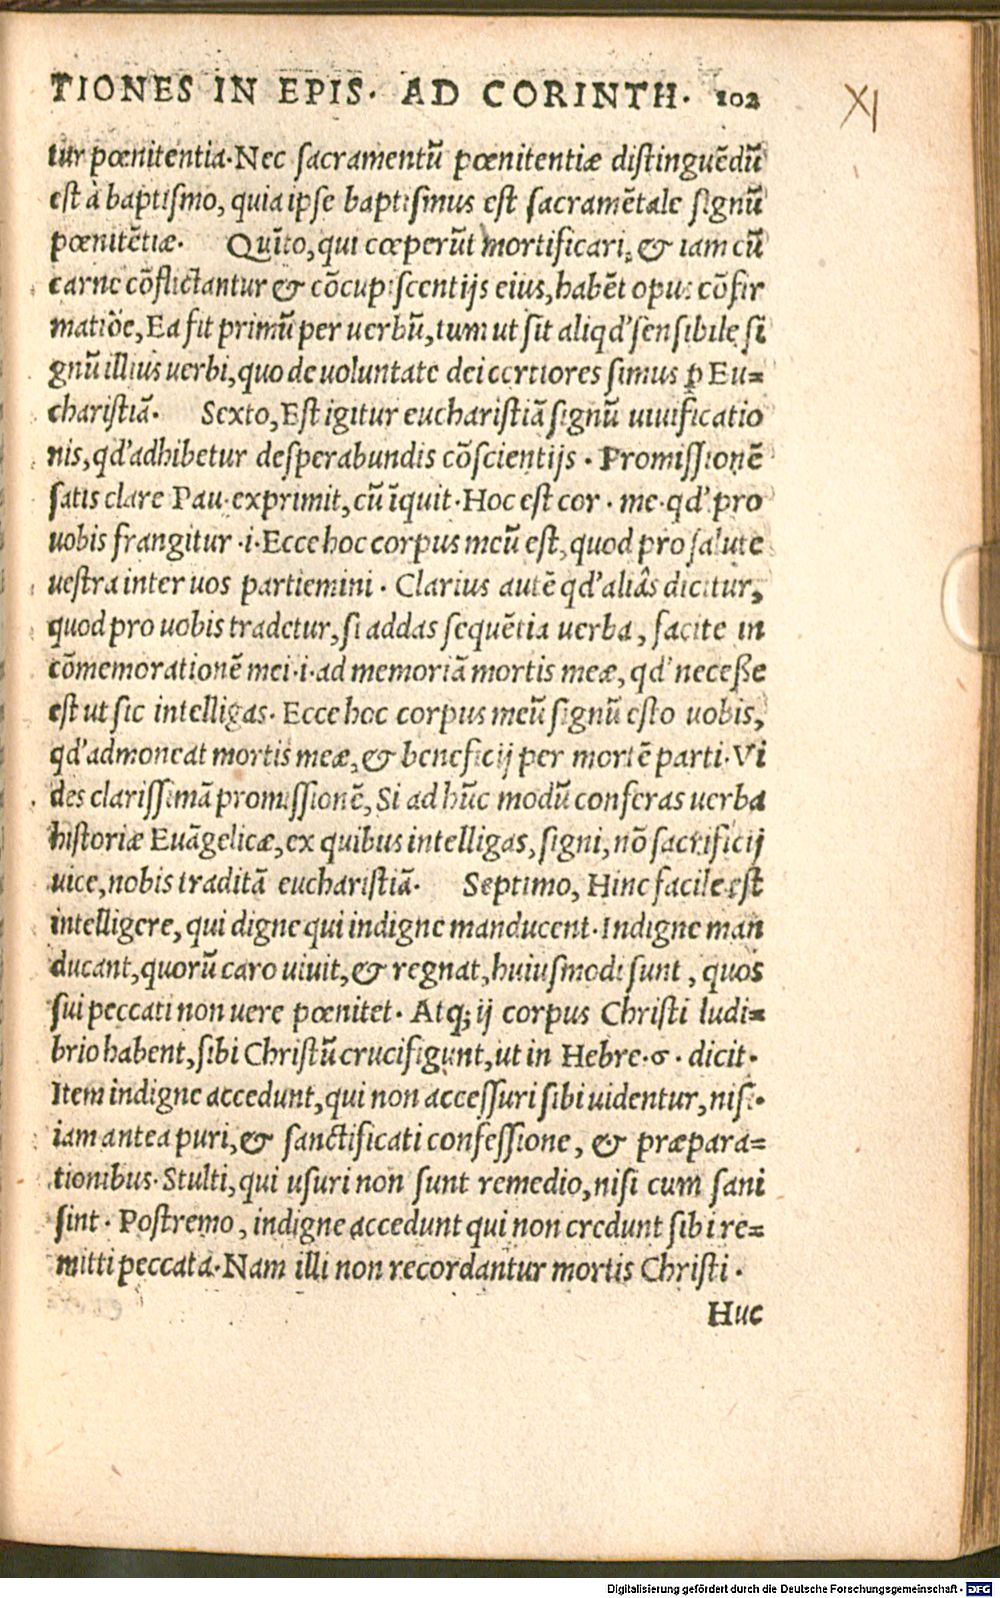 TIONES IN EPIS. AD CORINTH. 102
XI
tur pœnitentia. Nec sacramentū pœnitentiæ distinguēdū
est à baptismo, quia ipse baptismus est sacramētale signū
pœnitētiæ. Quīto, qui cœperūt mortificari, & iam cū
carne cōflictantur & cōcupiscentijs eius, habēt opus cōfir
matiōe, Ea fit primū per uerbū, tum ut sit aliqd' sensibile si
gnū illius uerbi, quo de uoluntate dei certiores simus ꝑ Eu=
charistiā. Sexto, Est igitur eucharistiā signū uiuificatio
nis, qd' adhibetur desperabundis cōscientijs. Promissionē
satis clare Pau. exprimit, cū īquit. Hoc est cor. me. qd' pro
uobis frangitur .i. Ecce hoc corpus meū est, quod pro salute
uestra inter uos partiemini. Clarius autē qd' aliâs dicitur,
quod pro uobis tradetur, si addas sequētia uerba, facite in
cōmemorationē mei .i. ad memoriā mortis meæ, qd' necesße
est ut sic intelligas. Ecce hoc corpus meū signū esto uobis,
qd' admoneat mortis meæ, & beneficij per mortē parti. Vi
des clarissimā promissionē, Si ad hūc modū conferas uerba
historiæ Euāgelicæ, ex quibus intelligas, signi, nō sacrificij
uice, nobis traditā eucharistiā. Septimo, Hinc facile est
intelligere, qui digne qui indigne manducent. Indigne man
ducant, quorū caro uiuit, & regnat, huiusmodi sunt, quos
sui peccati non uere pœnitet. Atq; ij corpus Christi ludi=
brio habent, sibi Christū crucifigunt, ut in Hebre. 6. dicit.
Item indigne accedunt, qui non accessuri sibi uidentur, nisi
iam antea puri, & sanctificati confessione, & præpara=
tionibus. Stulti, qui usuri non sunt remedio, nisi cum sani
sint. Postremo, indigne accedunt qui non credunt sibi re=
mitti peccata. Nam illi non recordantur mortis Christi.
Huc
Digitalisierung gefördert durch die Deutsche Forschungsgemeinschaft - DFG